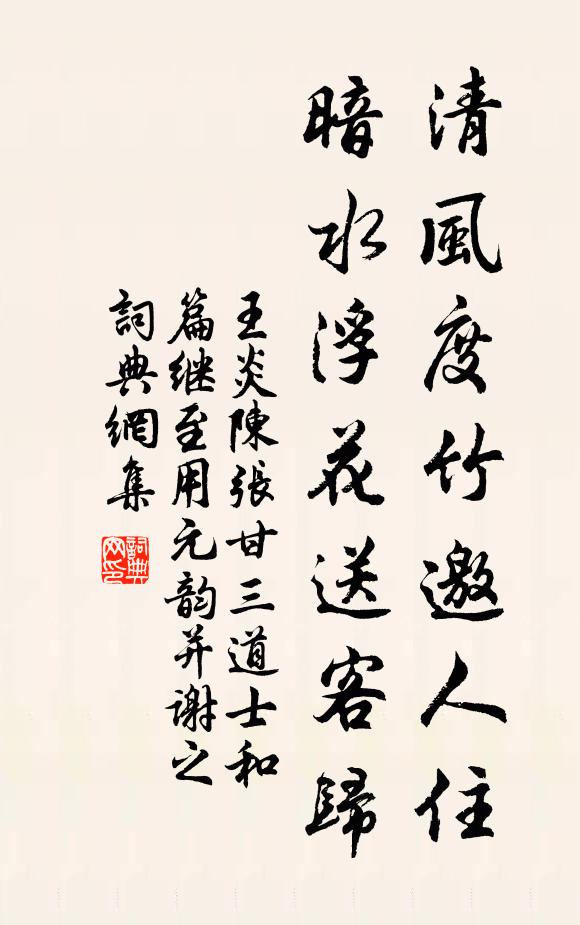 清風度竹邀人住
暗水浮花送客歸
王炎陳張甘三道士和
篇继至用元韵并謝之
詞典網集
詞典
网印